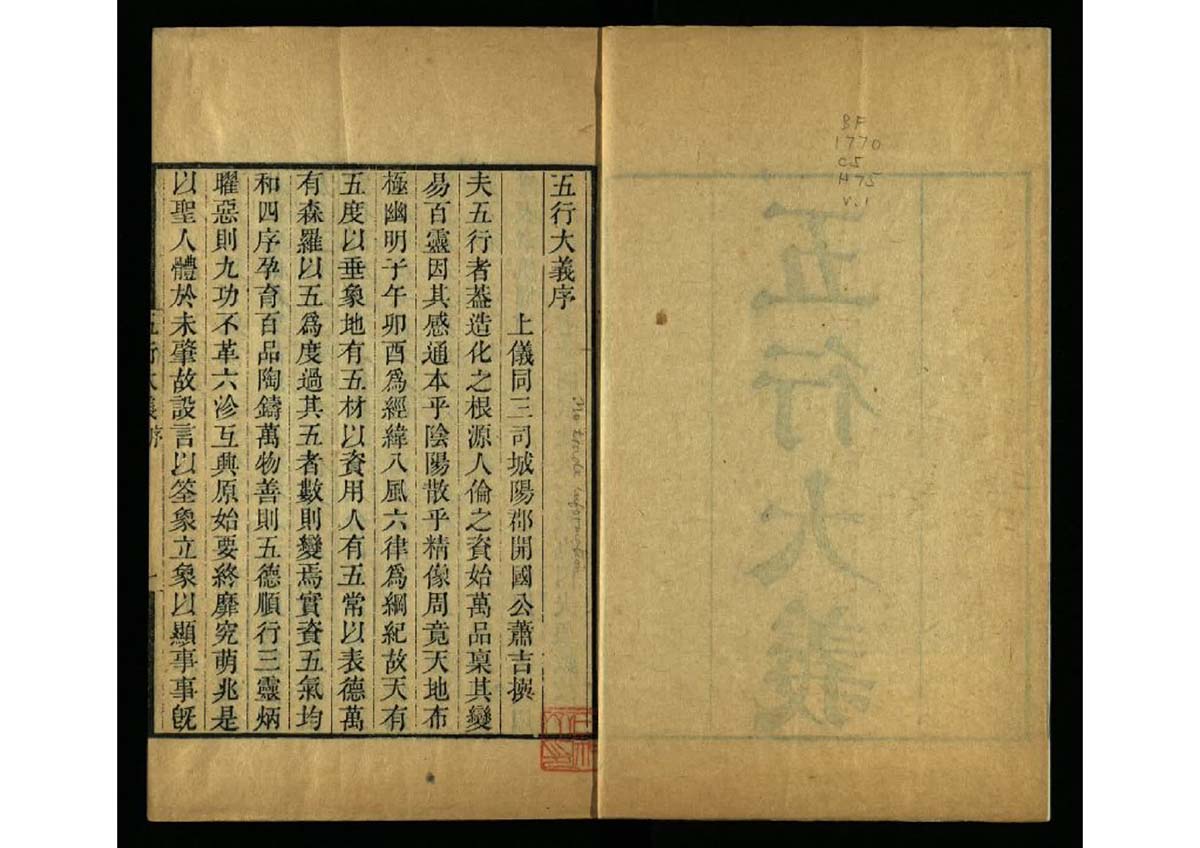 BF
1770
C5
H75
v.1
五行大義
五行大義序
上儀同三司城陽郡開國公蕭吉撰
夫五行者葢造化之根源人倫之資始萬品稟其變
易百靈因其感通本乎陰陽散乎精像周竟天地布
極幽明子午卯酉爲經緯八風六律爲綱紀故天有
五度以垂象地有五材以資用人有五常以表德萬
有森羅以五爲度過其五者數則變焉實資五氣均
和四序孕育百品陶鑄萬物善則五德順行三靈炳
曜惡則九功不革六沴互興原始要終靡究萌兆是
以聖人體於未肇故設言以筌象立象以顯事事旣
五行大義序